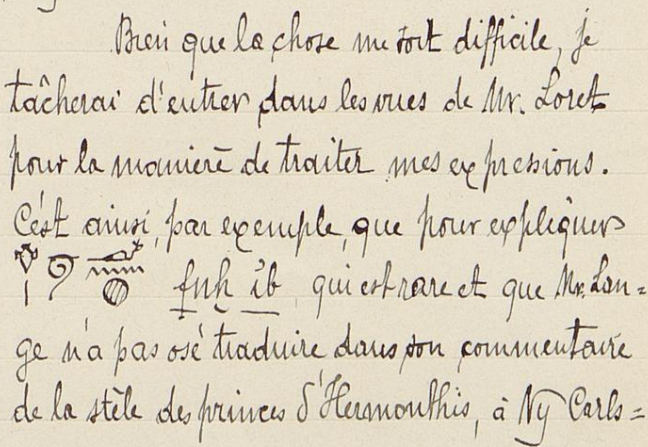 Bien que la chose me soit difficile, je
tâcherai d'entrer dans les vues de Mr. Loret
pour la manière de traiter mes expressions.
C'est ainsi, par exemple, que pour expliquer
fnḫ ib qui est rare et que Mr. Lan=
ge n'a pas osé traduire dans son commentaire
de la stèle des princes d'Hermonthis, à Ny Carls=